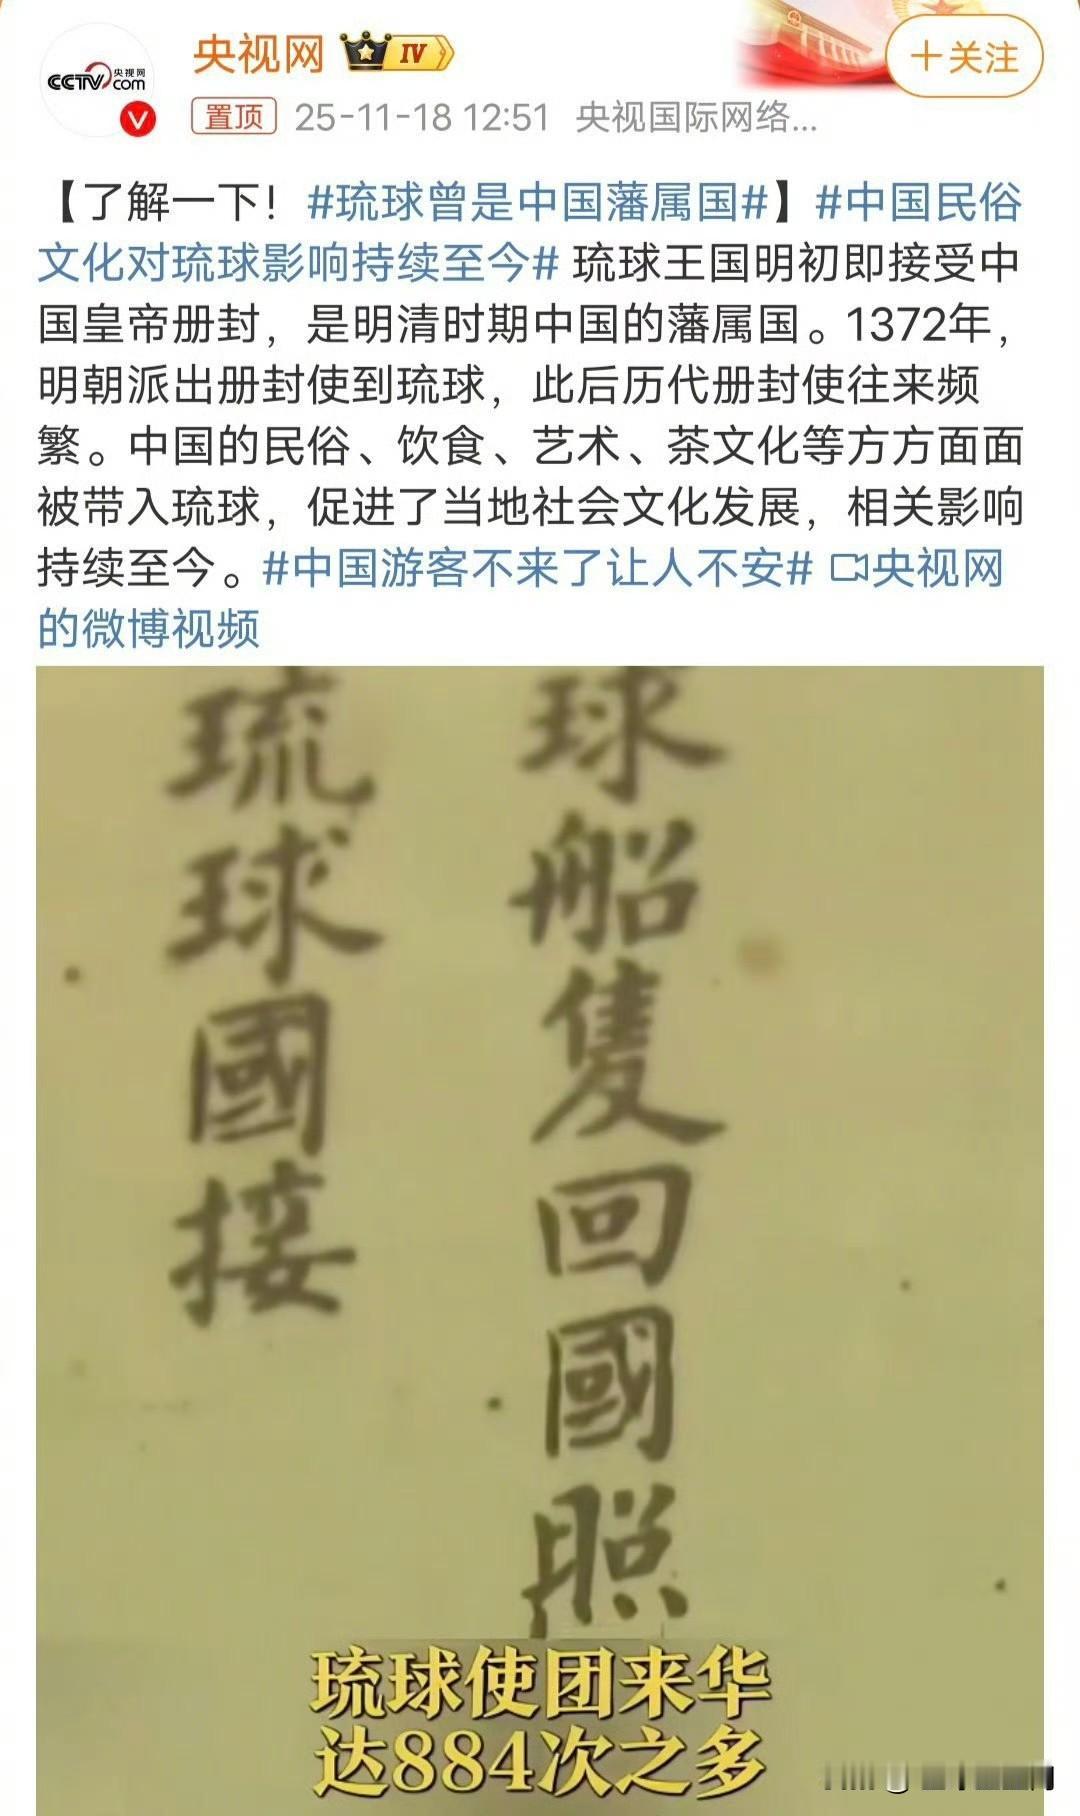 CCTV 央视网
com
央视网 IV
+关注
V
置顶 25-11-18 12:51 央视国际网络...
【了解一下！#琉球曾是中国藩属国#】#中国民俗
文化对琉球影响持续至今# 琉球王国明初即接受中
国皇帝册封，是明清时期中国的藩属国。1372年，
明朝派出册封使到琉球，此后历代册封使往来频
繁。中国的民俗、饮食、艺术、茶文化等方方面面
被带入琉球，促进了当地社会文化发展，相关影响
持续至今。#中国游客不来了让人不安# 央视网
的微博视频
球船隻回國照
琉球國接
琉球使团来华
达884次之多